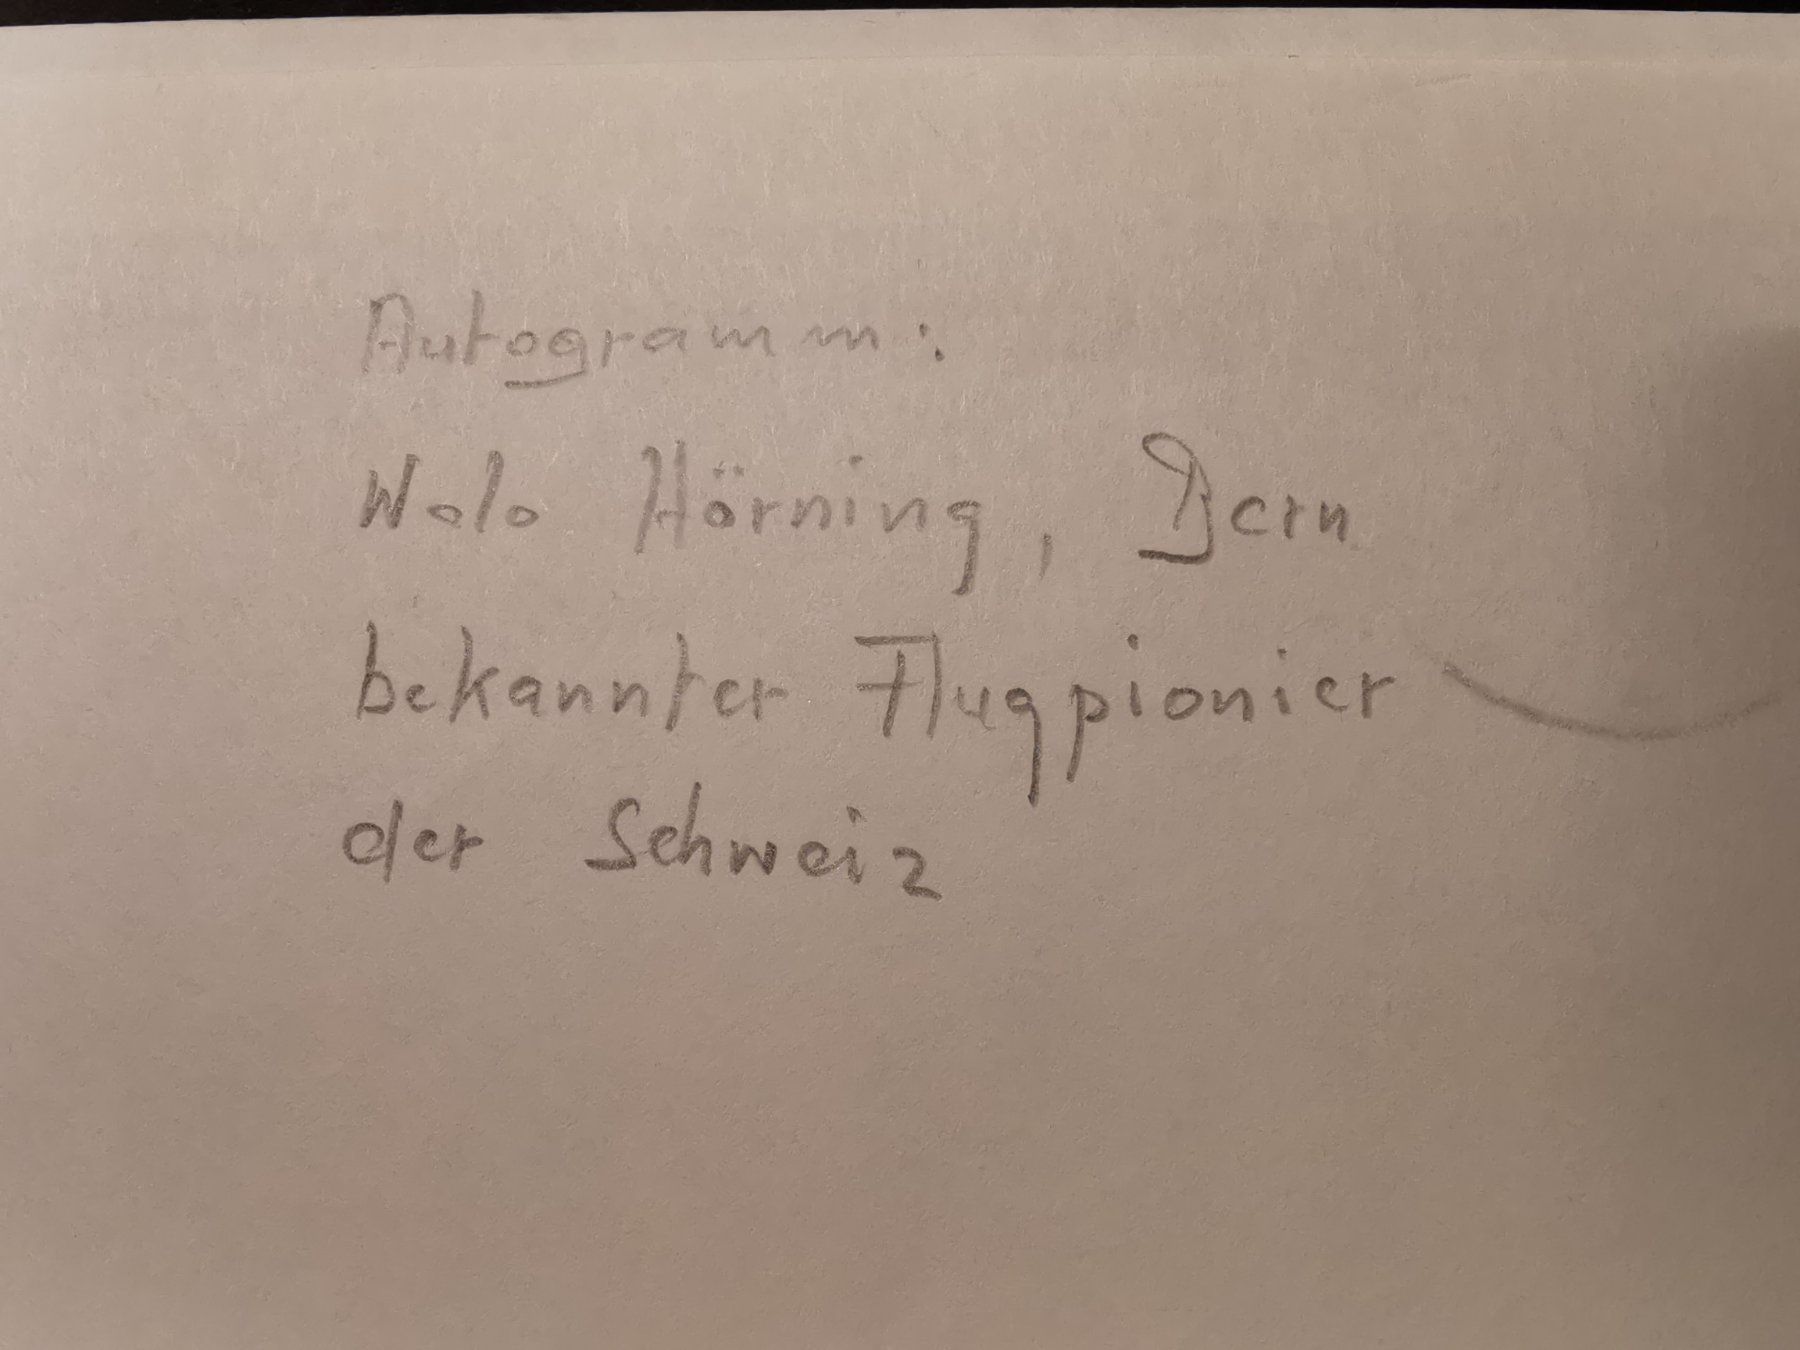 Autogramm:
Wolo Hörning, Bern
bekannter Flugpionier
der Schweiz